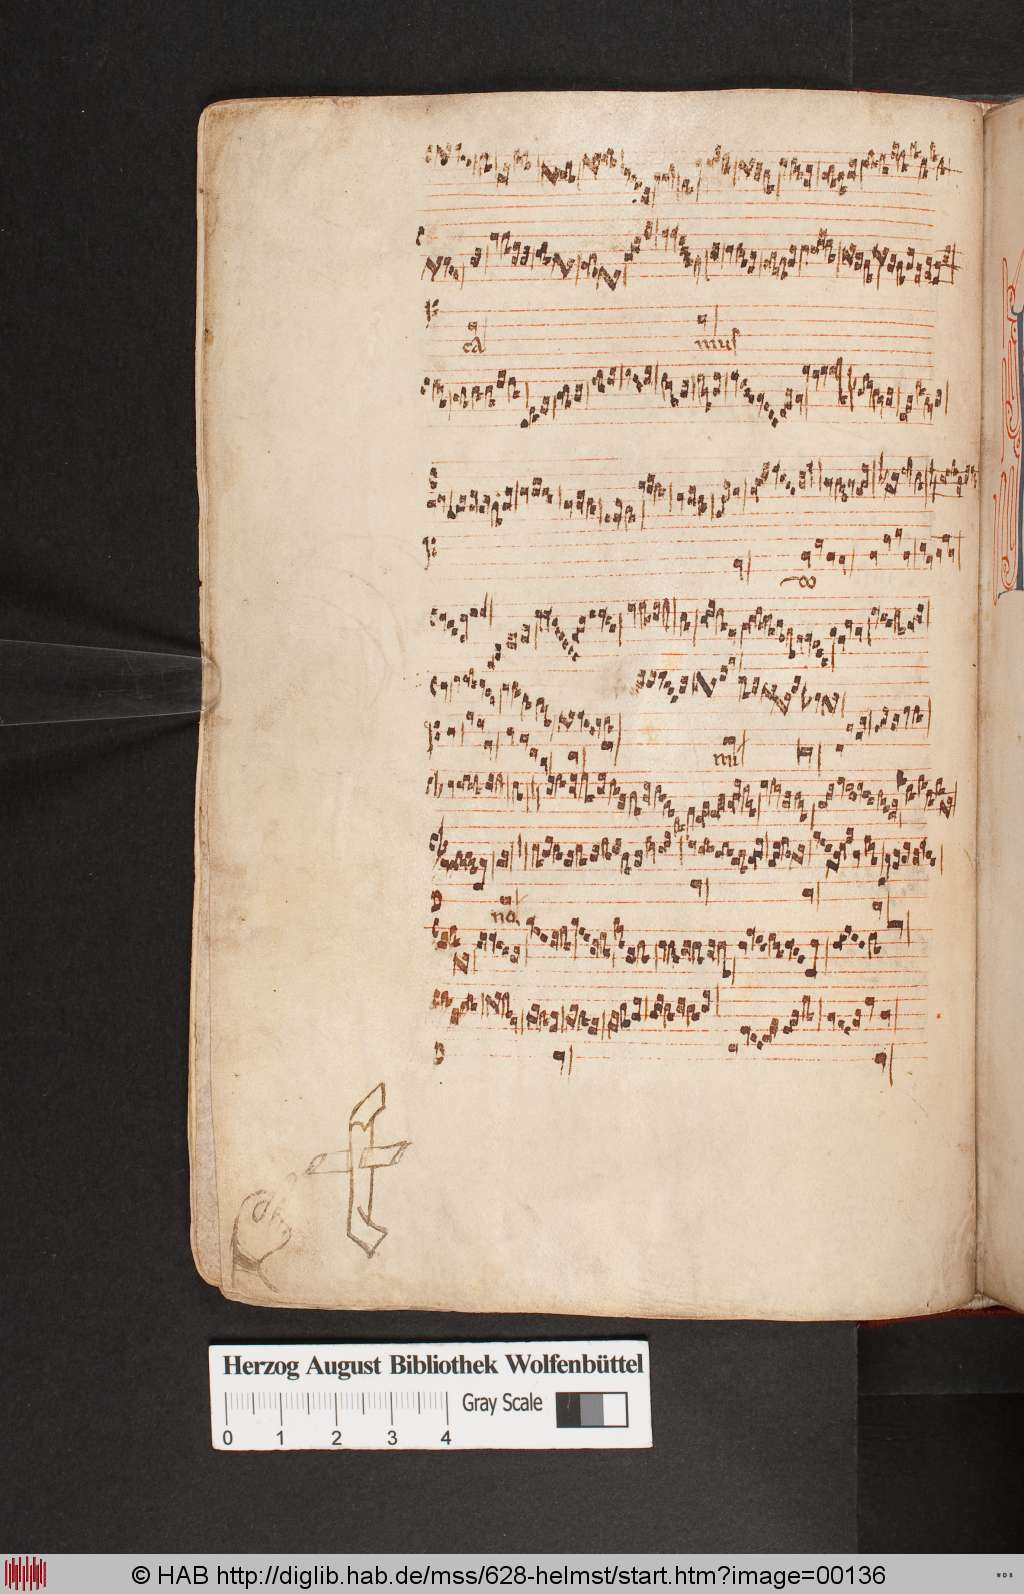 ca mus
do
mi
no
Herzog August Bibliothek Wolfenbüttel
Gray Scale
0 1 2 3 4
© HAB http://diglib.hab.de/mss/628-helmst/start.htm?image=00136